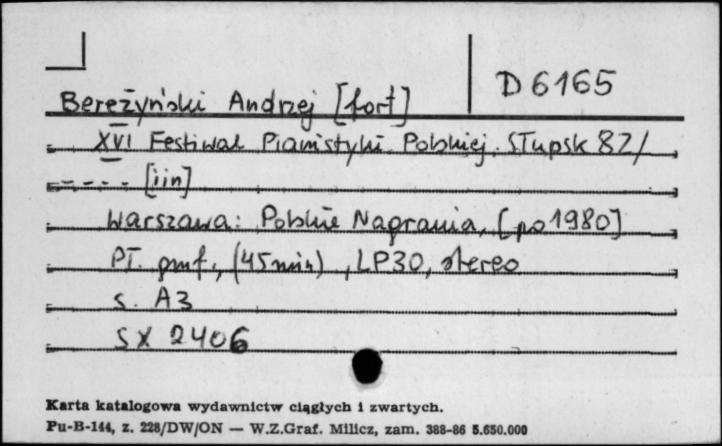 D 6165
Bereżyński Andrzej [fort]
XVI Festiwal Pianistyki Polskiej. Słupsk 82/
----- [iin]
Warszawa: Polskie Nagrania, [po 1980]
Pł. gmf., (45 min), LP30, stereo
s. A3
SX 2406
Karta katalogowa wydawnictw ciągłych i zwartych.
Pu-B-144, z. 228/DW/ON — W.Z.Graf. Milicz, zam. 388-86 5.650.000